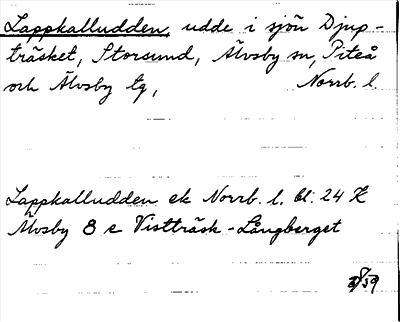 Lappkalludden, udde i sjön Djup-
träsket, Storsund, Älvsby sn, Piteå
och Älvsby tg, Norrb. l.
Lappkalludden ek Norrb. l. bl: 24 K
Älvsby 8 e Vistträsk - Långberget